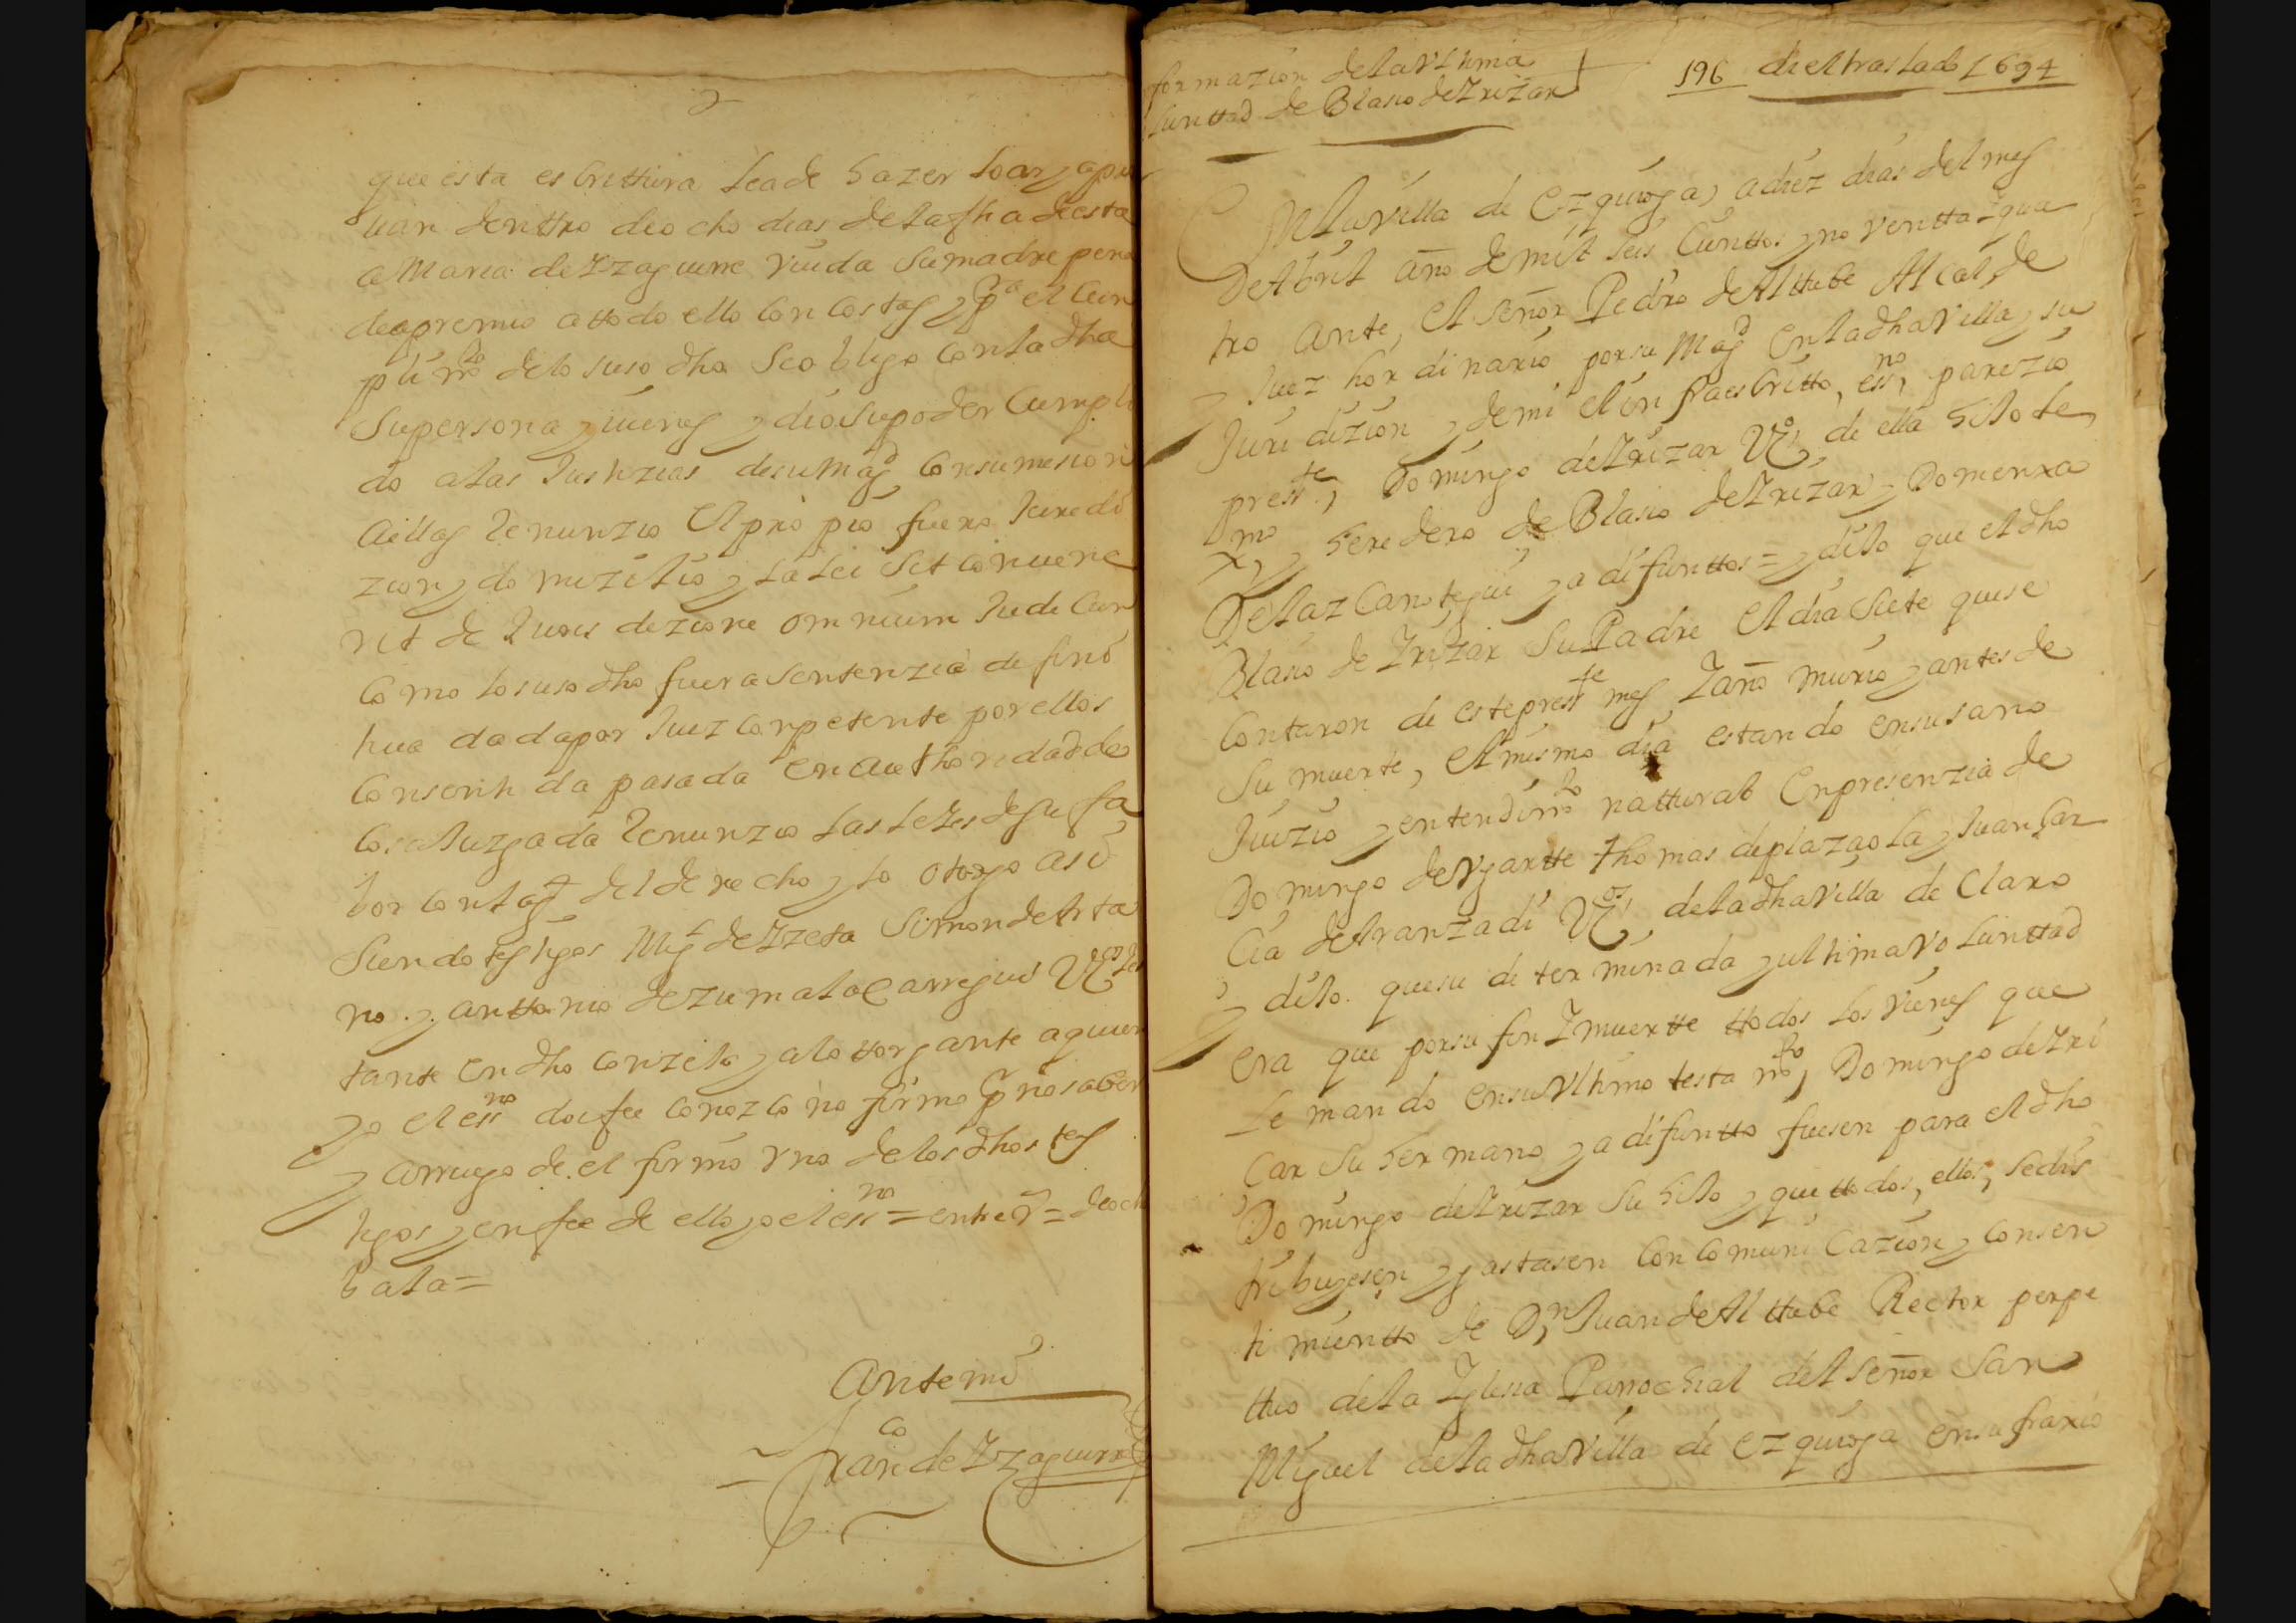 que esta escrittura sea de hazer loar y apro
uar denttro de ocho dias de la fha de esta
a Maria de Yzaguirre viuda su madre pena
de apremio a ttodo ello con costas y pa el cun
plimto de lo suso dho se obligo con la dha
su persona y uienes y dio su poder cumpli
do a las Justizias de su Magd con sumision
a ellas renunzio el propio fuero Juredi
zion y domizilio y la lei sit conuene
rit de Jurisdezione omnium Judicun
como lo suso dho fuera sentenzia defini
tiua dada por Juez conpetente por ellos
consentida pasada en authoridad de
cosa Juzgada renunzio las leies de su fa
bor con la gl del derecho y lo otorgo asi
siendo testigos Migl de Yzeta Simon de Arta
no y anttonio de zumalacarregui Vos
tante en dho conzejo y a lo ttorgante a quien
yo el essno doi fee conozco no firmo por no saber
y a rruego de el firmo vno de los dhos tes
tigos y en fee de ello yo el essno = entre Rs = de och
bala =
Ante mi
Franco de Yzaguirre
formazion de la vltima
luntad de Blasio de Yrizar
196 di el traslado 1694
En la villa de Ezquioga, a diez dias del mes
de Abril año de mil seis cienttos y noventta y qua
tro ante, el señor Pedro de Alttube Alcalde
y Juez hordinario por su Magd en la dha villa y su
Juridizion y de mi el infraescritto, essno, parezio
presste, Domingo de Yrizar Vo, de ella hijo le
xmo y heredero de Blasio de Yrizar y Domenxa
de Lazcanotegui ya difunttos = y dijo que el dho
Blasio de Yrizar su Padre el dia siete que se
contaron de este presste mes Y año murio y antes de
su muerte, el mismo dia estando en su sano
Juizio y entendimto natturab en presenzia de
Domingo de vgartte thomas de plazaola y Juan Gar
cia de Aranzadi Vos, de la dha villa de claro
y dijo. que su determinada y ultima voluntтad
era que por su fin Y muertte ttodos los vienes que
le mando en su vltimo testamto, Domingo de Yri
çar su hermano ya difuntto fuesen para el dho
Domingo de Yrizar su hijo y que ttodos, ellos, se dis
tribuyesen y gastasen con comunicazion y consen
timientto de Dn Juan de Alttube Rector perpe
ttuo de la Yglesia Parrochial del señor San
Miguel de la dha Villa de Ezquioga en sufraxio